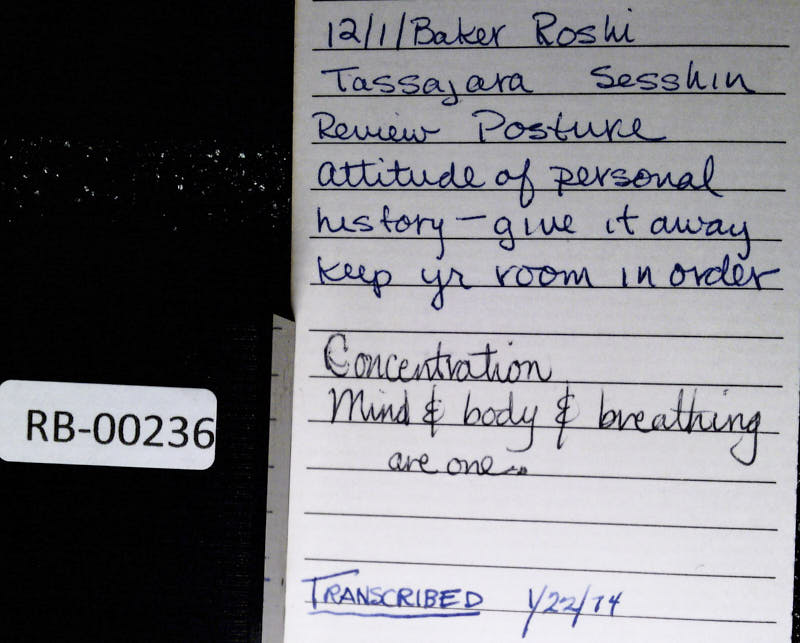 12/1/Baker Roshi
Tassajara Sesshin
Review Posture
attitude of personal
history – give it away
keep yr room in order
Concentration
Mind & body & breathing
are one...
RB-00236
TRANSCRIBED 1/22/74